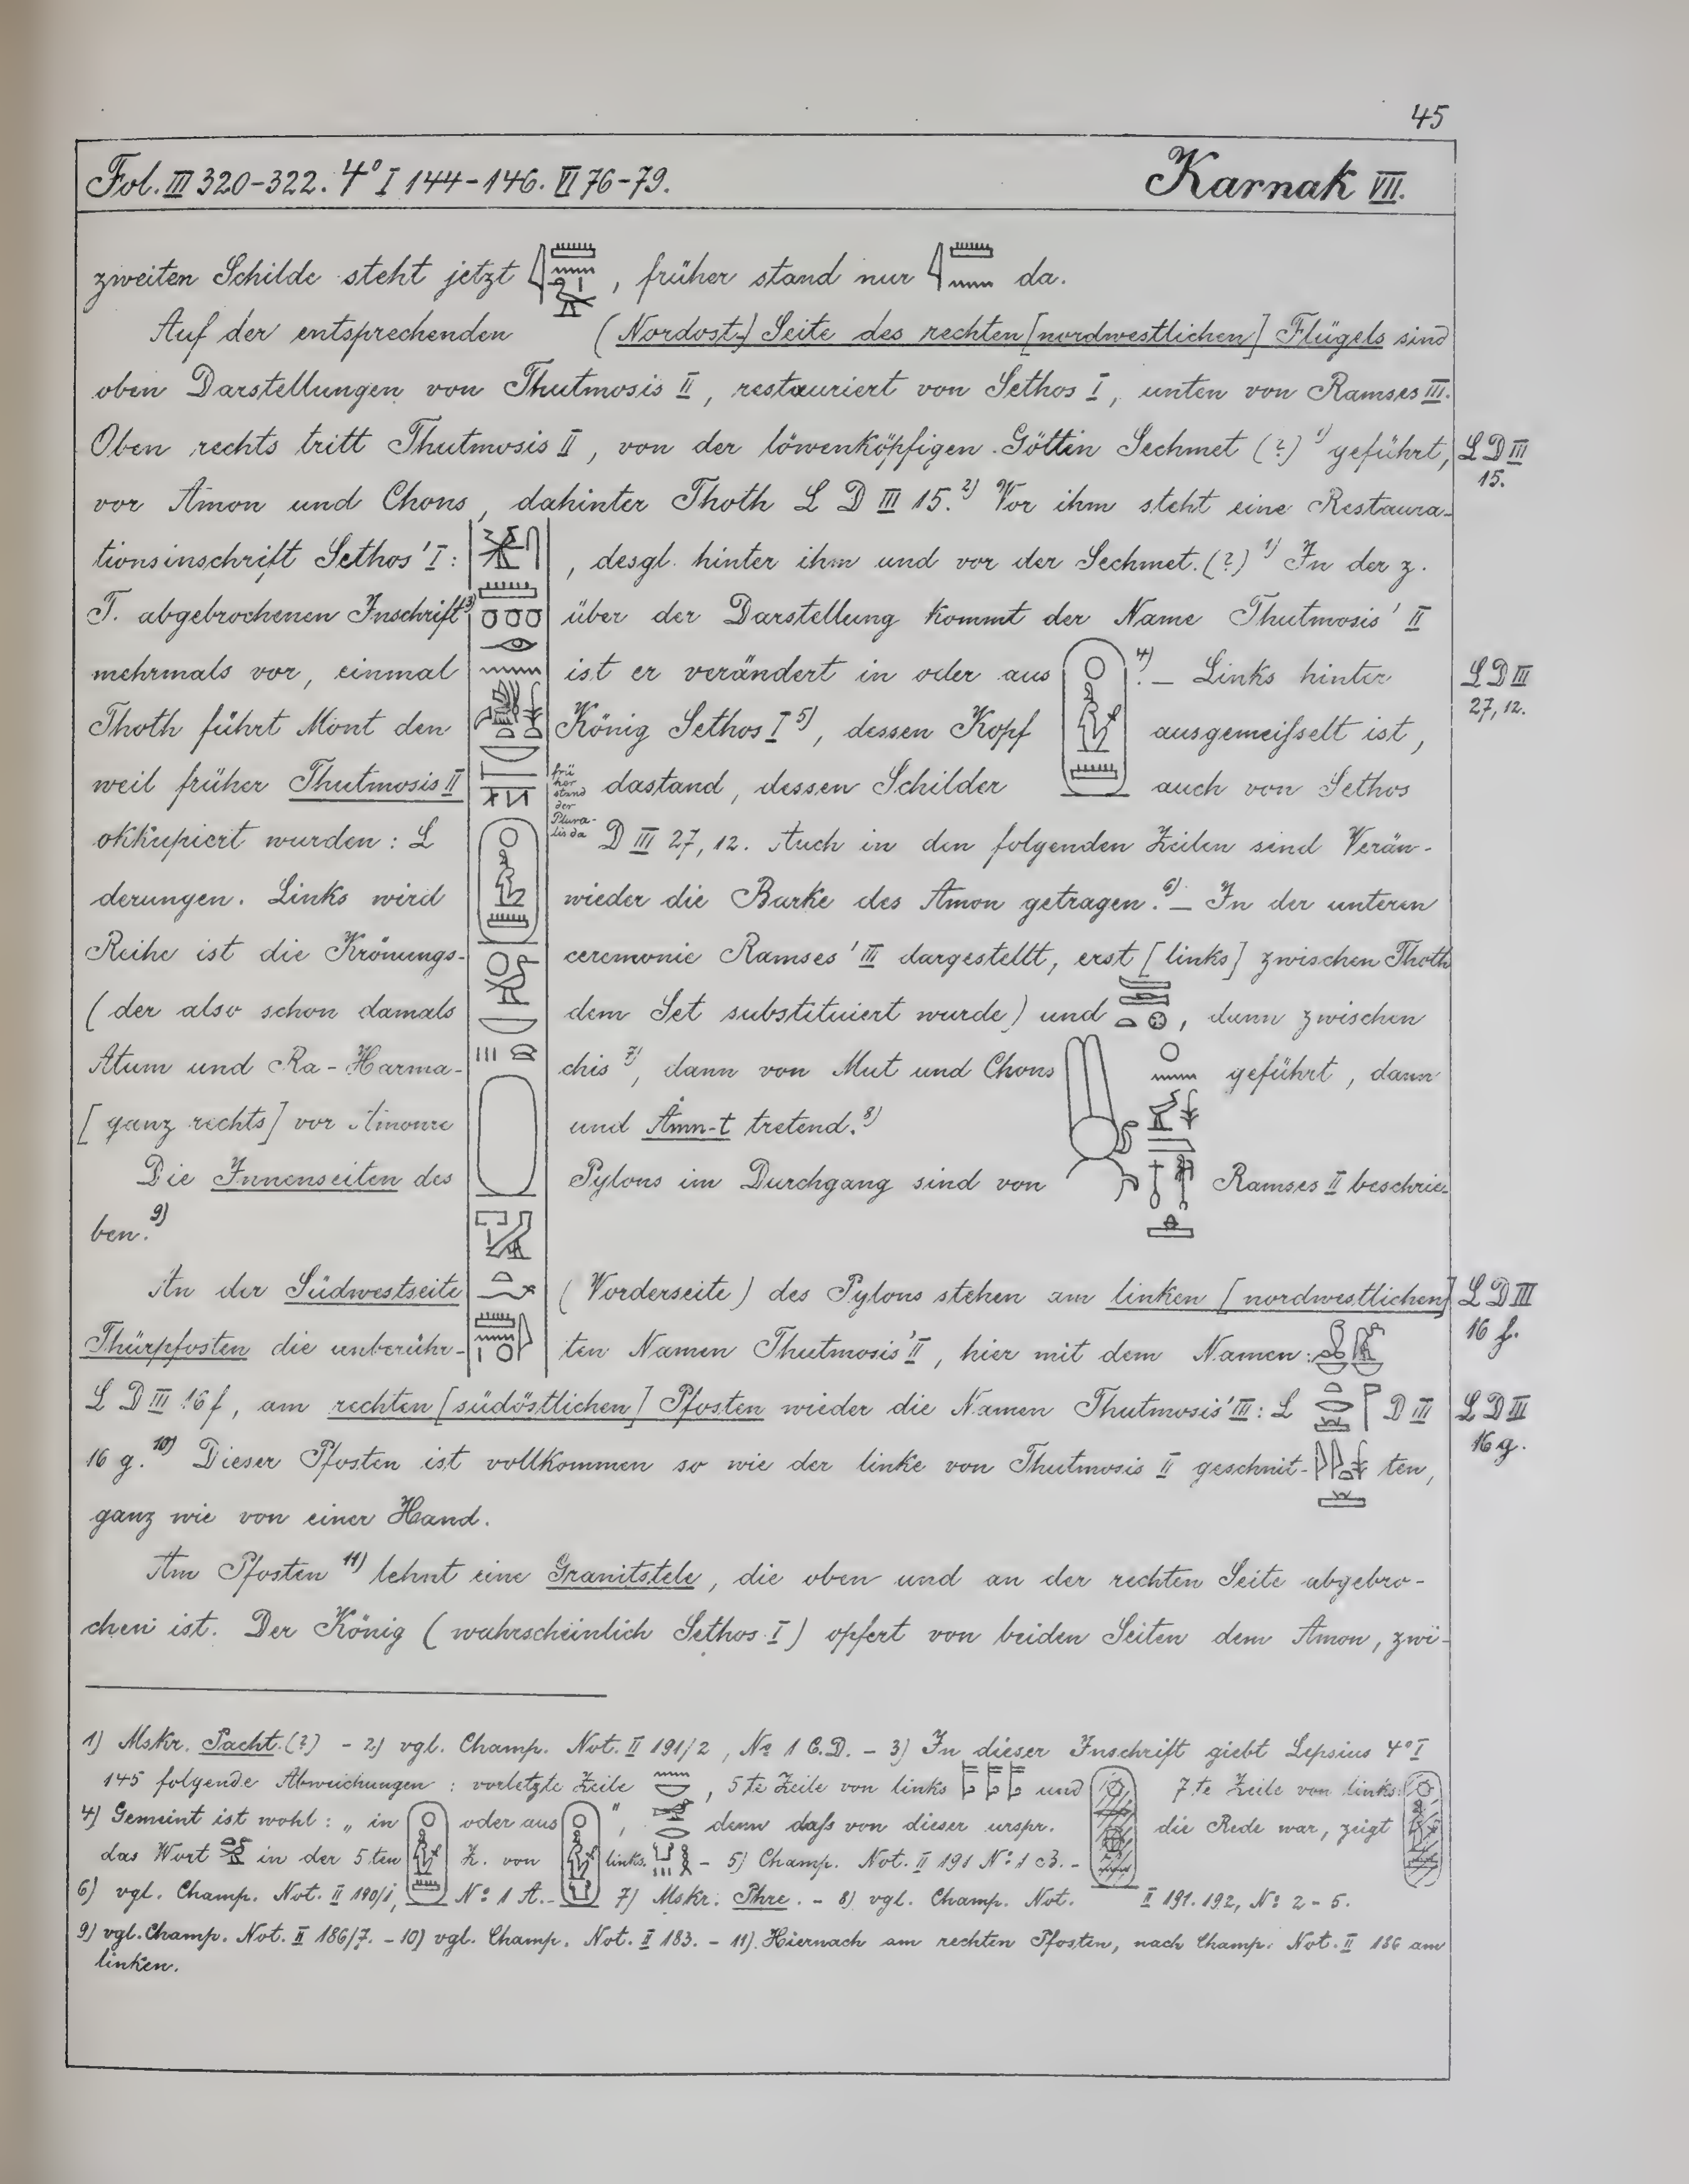 45
Fol. III 320-322. 4° I 144-146. VI 76-79. Karnak VII.
zweiten Schilde steht jetzt , früher stand nur da.
Auf der entsprechenden (Nordost-) Seite des rechten [nordwestlichen] Flügels sind
oben Darstellungen von Thutmosis II, restauriert von Sethos I, unten von Ramses III.
Oben rechts tritt Thutmosis II, von der löwenköpfigen Göttin Sechmet (?) 1) geführt, L D III
15.
vor Amon und Chons, dahinter Thoth L D III 15. 2) Vor ihm steht eine Restaura-
tionsinschrift Sethos' I: , desgl. hinter ihm und vor der Sechmet. (?) 1) In der z.
T. abgebrochenen Inschrift 3) über der Darstellung kommt der Name Thutmosis' II
mehrmals vor, einmal ist er verändert in oder aus 4). — Links hinter L D III
27, 12.
Thoth führt Mont den König Sethos I 5), dessen Kopf ausgemeißelt ist,
weil früher Thutmosis II dastand, dessen Schilder auch von Sethos
frü
her
stand
der
Plura-
lis da
okkupiert wurden: L D III 27, 12. Auch in den folgenden Zeilen sind Verän-
derungen. Links wird wieder die Barke des Amon getragen. 6) — In der unteren
Reihe ist die Krönungs- ceremonie Ramses' III dargestellt, erst [links] zwischen Thoth
(der also schon damals dem Set substituiert wurde) und , dann zwischen
Atum und Ra-Harma- chis 7), dann von Mut und Chons geführt, dann
[ganz rechts] vor Amonre und Åmn-t tretend. 8)
Die Innenseiten des Pylons im Durchgang sind von Ramses II beschrie-
ben. 9)
An der Südwestseite (Vorderseite) des Pylons stehen am linken [nordwestlichen] L D III
16 f.
Thürpfosten die unberühr- ten Namen Thutmosis' II, hier mit dem Namen:
L D III 16 f, am rechten [südöstlichen] Pfosten wieder die Namen Thutmosis' III: L D III L D III
16 g.
16 g. 10) Dieser Pfosten ist vollkommen so wie der linke von Thutmosis II geschnit- ten,
ganz wie von einer Hand.
Am Pfosten 11) lehnt eine Granitstele, die oben und an der rechten Seite abgebro-
chen ist. Der König (wahrscheinlich Sethos I) opfert von beiden Seiten dem Amon, zwi-
1) Mskr. Pacht. (?) - 2) vgl. Champ. Not. II 191/2, No 1 C.D. - 3) In dieser Inschrift giebt Lepsius 4° I
145 folgende Abweichungen: vorletzte Zeile , 5te Zeile von links und 7te Zeile von links:
4) Gemeint ist wohl: „in oder aus ", denn daß von dieser urspr. die Rede war, zeigt
das Wort in der 5ten Z. von links. - 5) Champ. Not. II 191 No 1 B. -
6) vgl. Champ. Not. II 190/1, No 1 A. - 7) Mskr. Phre. - 8) vgl. Champ. Not. II 191. 192, No 2-5.
9) vgl. Champ. Not. II 186/7. - 10) vgl. Champ. Not. II 183. - 11) Hiernach am rechten Pfosten, nach Champ. Not. II 186 am
linken.